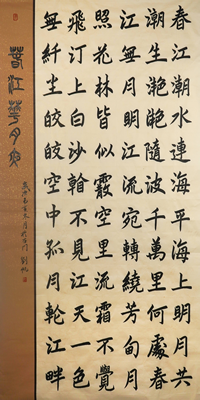 春江潮水連海平海上明月共
潮生灩灩隨波千萬里何處春
江無月明江流宛轉繞芳甸月
照花林皆似霰空里流霜不覺
飛汀上白沙看不見江天一色
無纖塵皎皎空中孤月輪江畔
春江華月夜